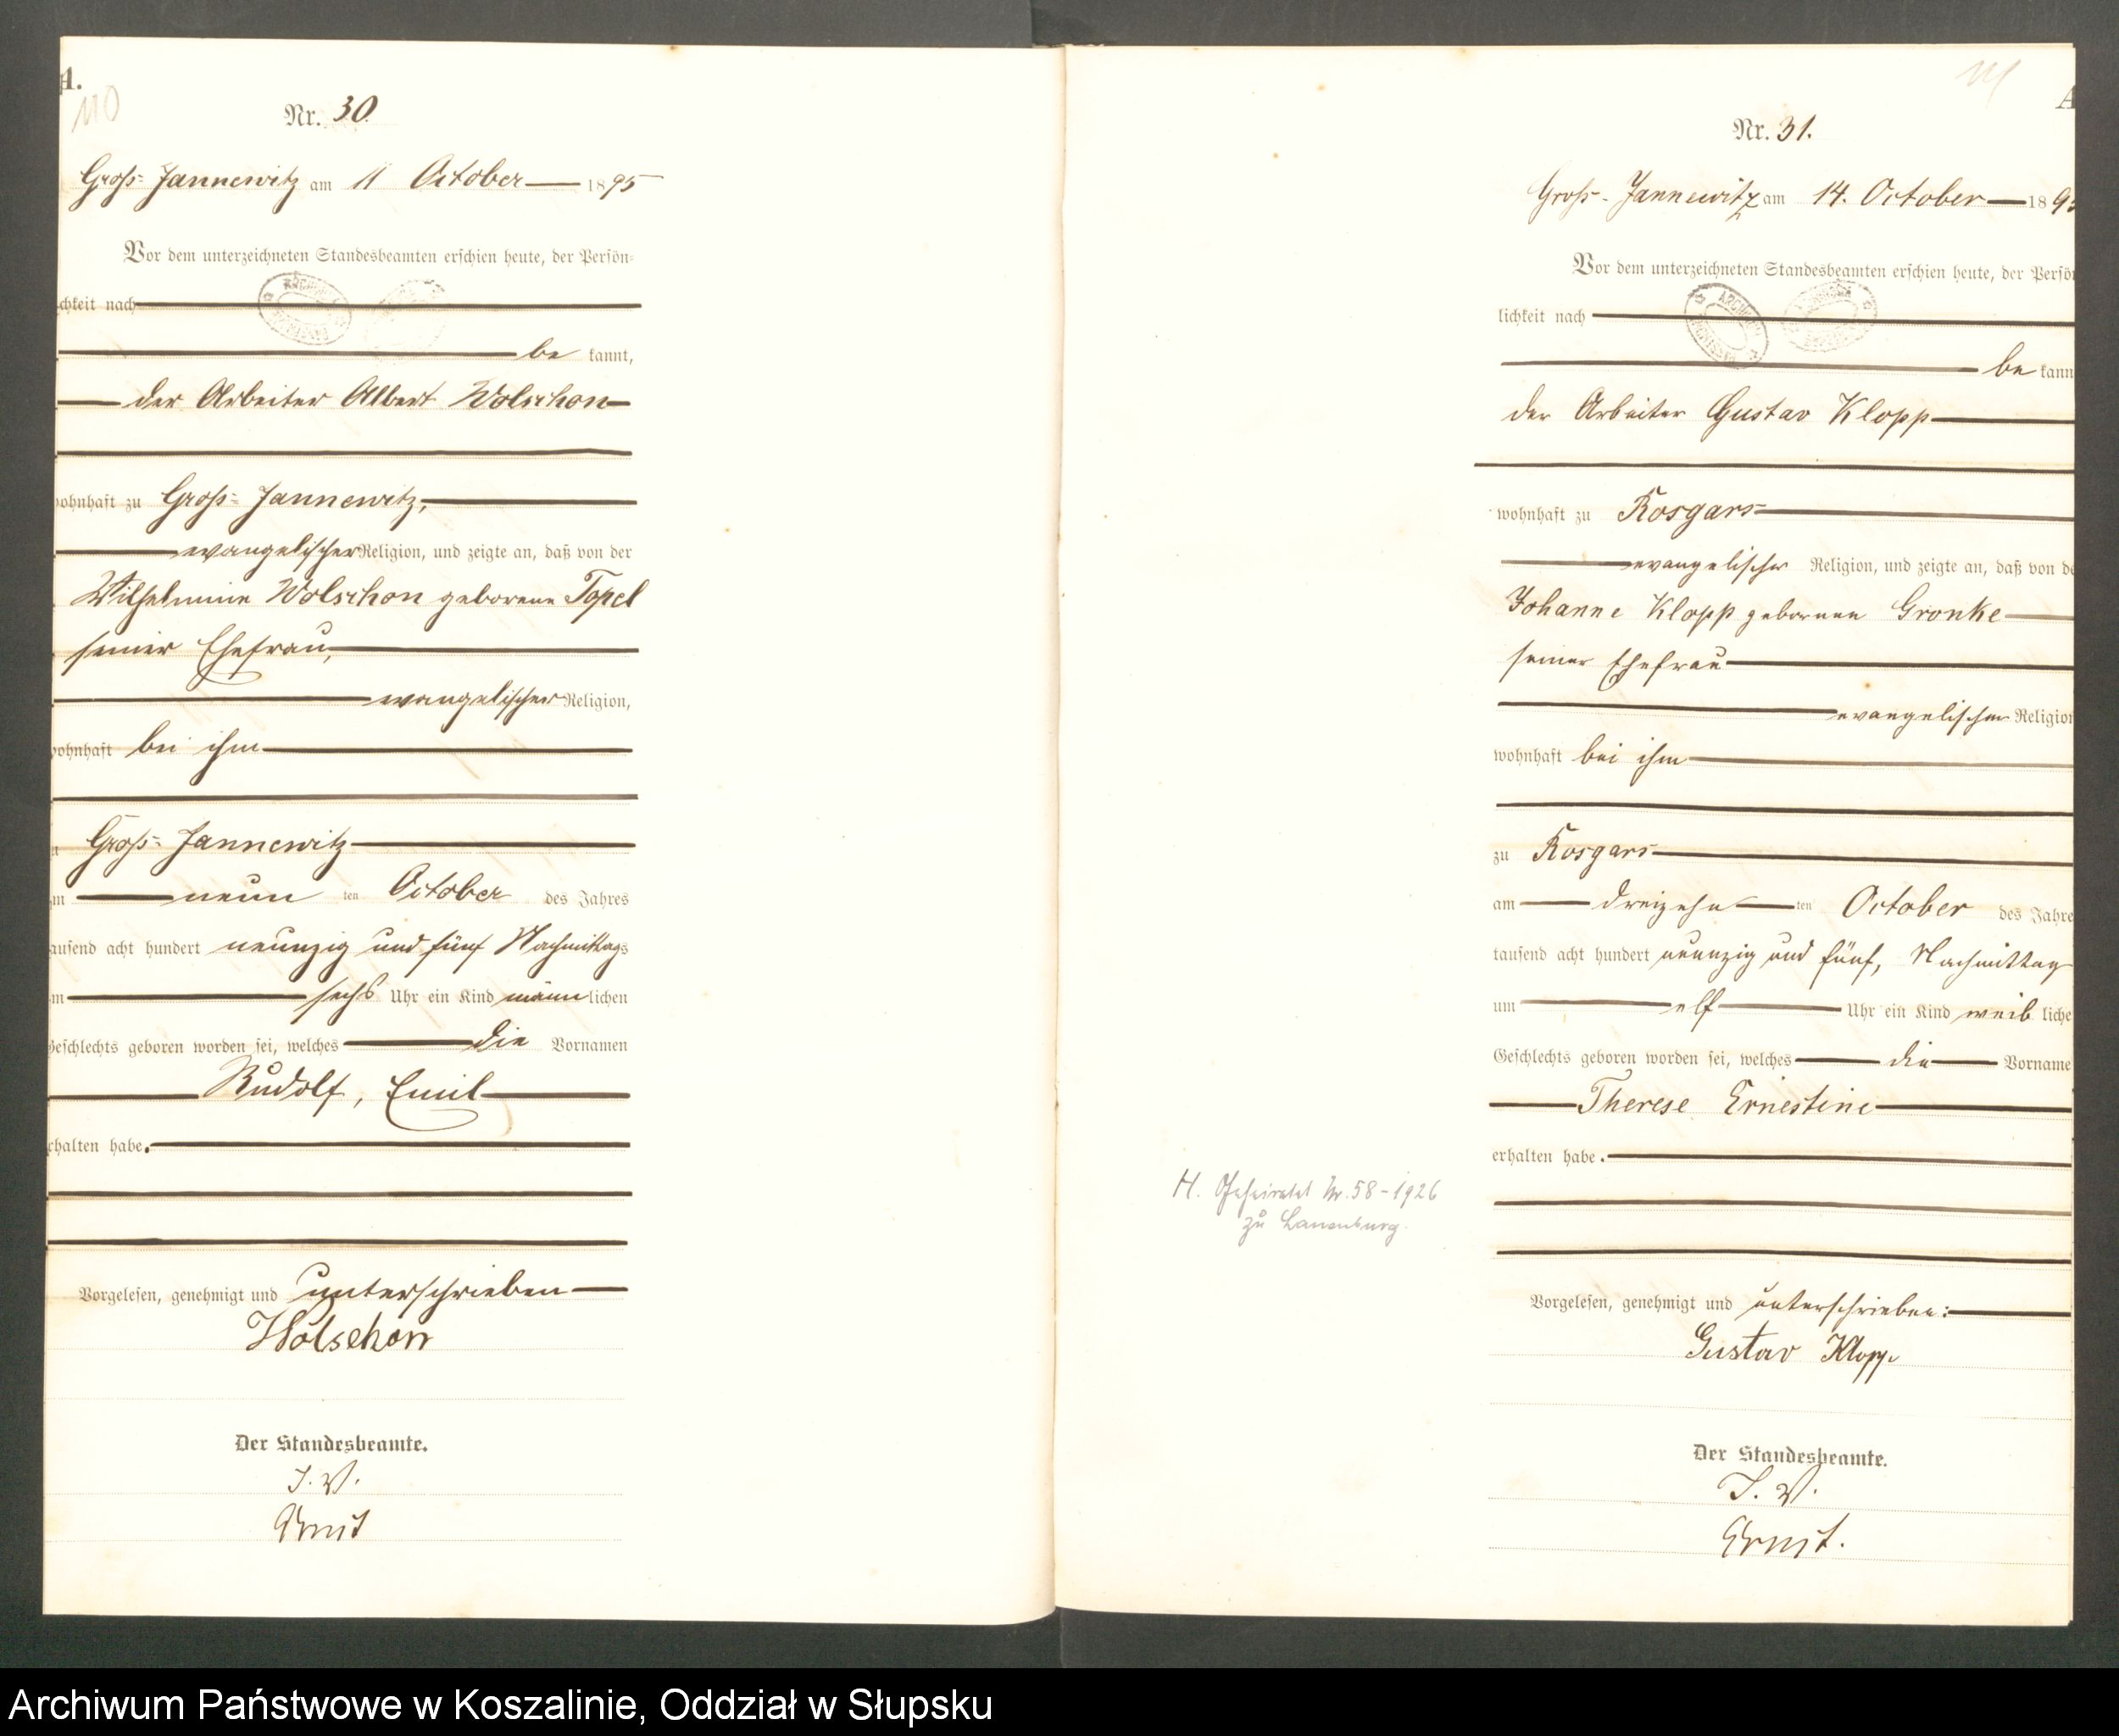 A.
110
Nr. 30.
Groß-Jannewitz am 11 October 1895
Vor dem unterzeichneten Standesbeamten erschien heute, der Persön-
chkeit nach
be kannt,
der Arbeiter Albert Wolschon
wohnhaft zu Groß-Jannewitz,
evangelischer Religion, und zeigte an, daß von der
Wilhelmine Wolschon geborene Topel
seiner Ehefrau,
evangelischer Religion,
wohnhaft bei ihm
Groß-Jannewitz
neun ten October des Jahres
tausend acht hundert neunzig und fünf Nachmittags
um sechs Uhr ein Kind männlichen
Geschlechts geboren worden sei, welches die Vornamen
Rudolf, Emil
erhalten habe.
Vorgelesen, genehmigt und unterschrieben
Wolschon
Der Standesbeamte.
I. V.
Ernst
111
A
Nr. 31.
Groß-Jannewitz am 14. October 189
Vor dem unterzeichneten Standesbeamten erschien heute, der Persön
lichkeit nach
be kann
der Arbeiter Gustav Klopp
wohnhaft zu Rosgars
evangelischer Religion, und zeigte an, daß von de
Johanne Klopp gebornen Gronke
seiner Ehefrau
evangelischer Religion
wohnhaft bei ihm
zu Rosgars
am dreizehn ten October des Jahre
tausend acht hundert neunzig und fünf, Nachmittag
um elf Uhr ein Kind weib liche
Geschlechts geboren worden sei, welches die Vorname
Therese Ernestine
erhalten habe.
H. Geheiratet Nr. 58-1926
zu Lauenburg.
Vorgelesen, genehmigt und unterschrieben:
Gustav Klopp
Der Standesbeamte.
I. V.
Ernst.
Archiwum Państwowe w Koszalinie, Oddział w Słupsku